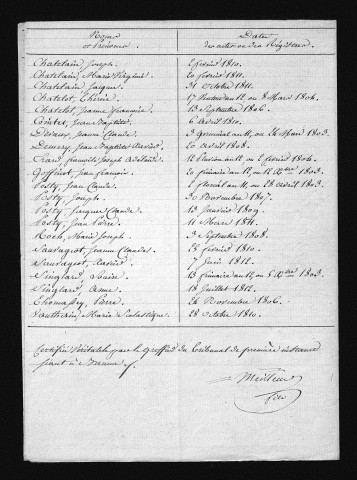 Noms et Prénoms	Dates des actes ou des Registres
Chatelain, Joseph.	2 février 1810.
Chatelain, Marie Virginie.	20 février 1811.
Chatelain, Jacques.	31 octobre 1811.
Chatelot, Thérèse.	17 Ventose an 12 ou 8 Mars 1804.
Chatelot, Jeanne Françoise.	13 Septembre 1806.
Comtet, Jean Baptiste.	6 avril 1810.
Devaux, Jeanne Claude.	3 Germinal an 11, ou 24 Mars 1803.
Jean Baptiste	20 avril 1808.
François Joseph	12 an 12 ou 2 février 1804.
Goffinet, Jean François.	20 frimaire an 12, ou 12 Xbre 1803.
Posty, Jean Claude.	8 floréal an 11, ou 28 avril 1803.
Posty, Joseph.	30 Novembre 1807.
Posty, Jacques Claude.	13 Janvier 1809.
Posty, Jean Pierre.	11 Mars 1811.
Roch, Marie Joseph.	3 Septembre 1808.
Sauvageot, Jeanne Claude.	22 février 1810.
Sauvageot,	7 Juin 1812.
Singlard,	13 frimaire an 12, ou 5 Xbre 1803.
Singlard, Anne.	18 Juillet 1812.
Thomassey, Pierre.	26 Novembre 1806.
Vauthrin, Marie Scolastique.	28 octobre 1810.
Certifié Véritable par le greffier du tribunal de première instance
séant à